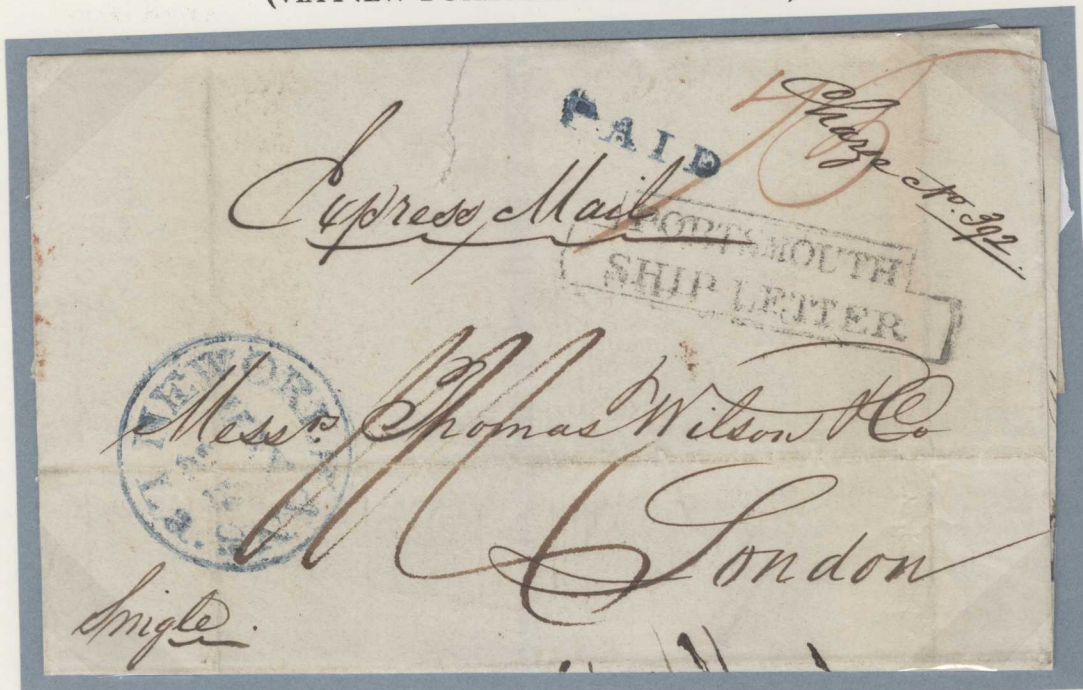 PAID
Charge No. 392.
Express Mail
PORTSMOUTH
SHIP LETTER
NEW ORLEANS
MAY
La.
Messrs Thomas Wilson & Co
London
Single.